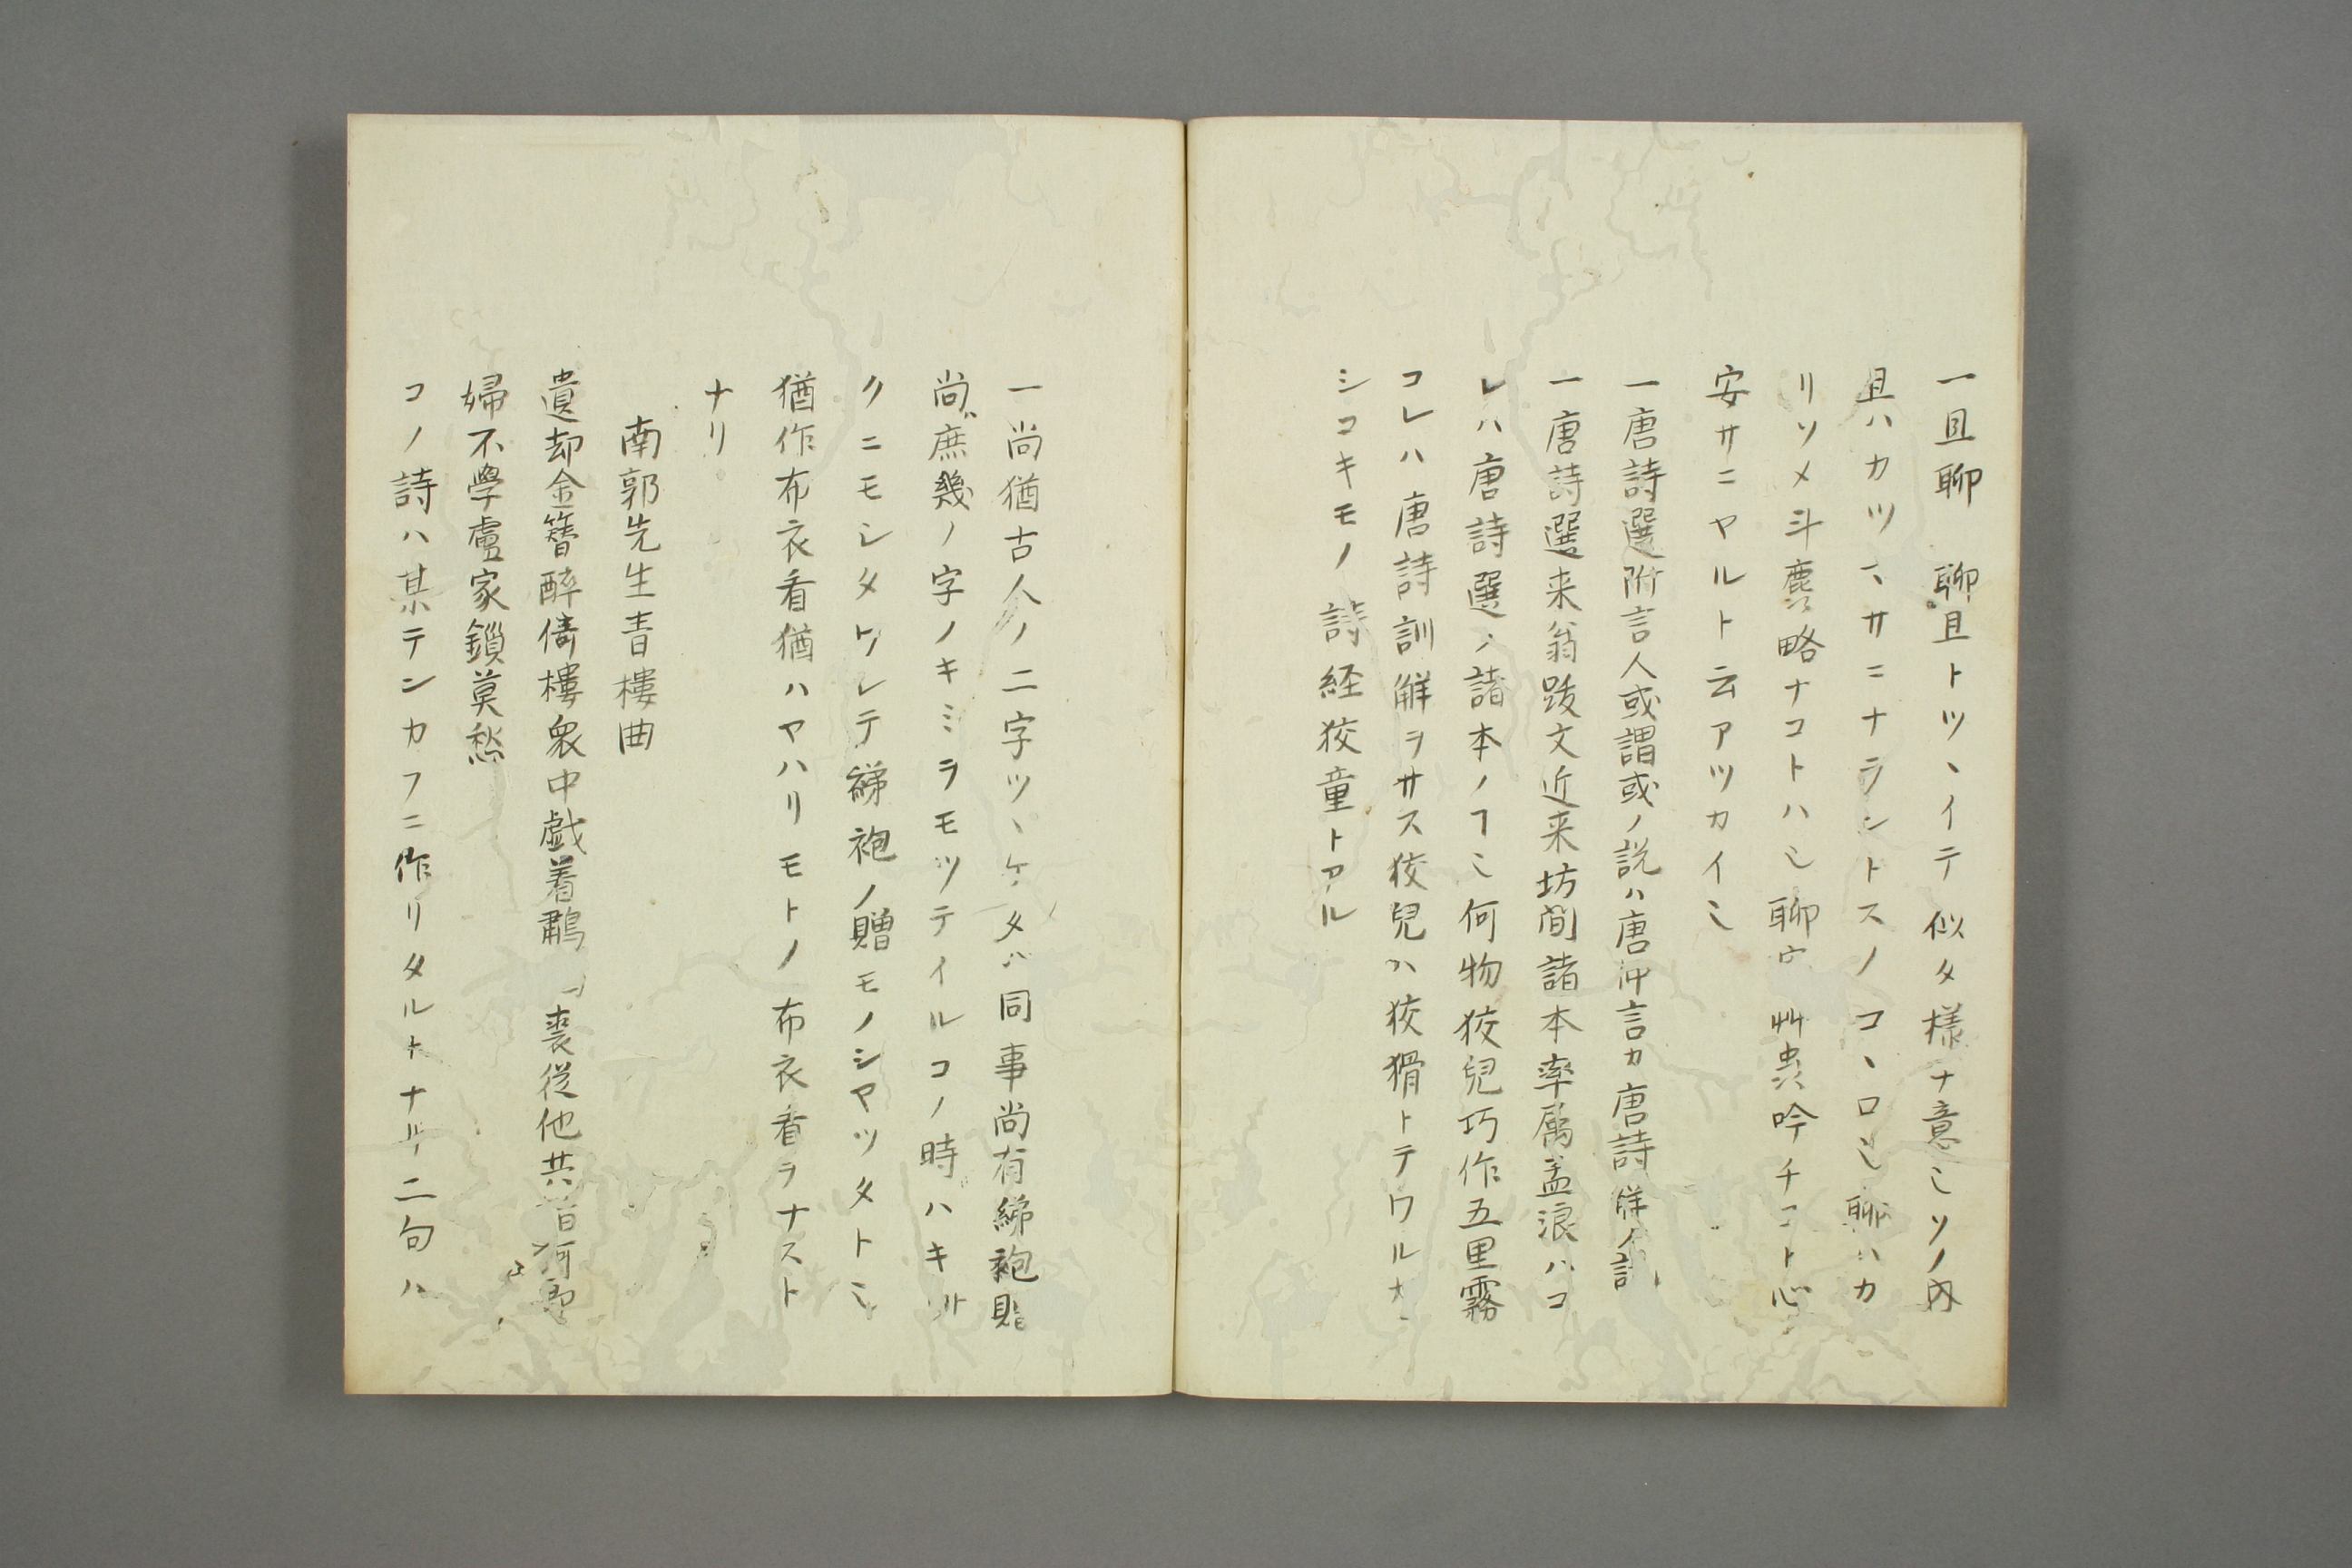 一且聊　聊且トツヽイテ似タ様ナ意ミソノ内
且ハカツ〻サニナラントスノコヽロミ聊ハカ
リソメ斗麁略ナコトハミ聊宀艸虫吟チコト心
安サニヤルト云アツカイミ
一唐詩選附言人或謂或ノ説ハ唐仲言カ唐詩觧ノ説
一唐詩選来翁跋文近来坊間諸本率属孟浪ハコ
レハ唐詩選ノ諸本ノヿミ何物狡兒巧作五里霧
コレハ唐詩訓觧ヲサス狡兒ハ狡猾トテワルナ
シコキモノ詩経狡童トアル
一尚猶古人ノ二字ツヽケタハ同事尚有綈袍贈
尚庶幾ノ字ノキミヲモツテイルコノ時ハキ
クニモシタワレテ綈袍ノ贈モノシヤツタトミ
猶作布衣看猶ハヤハリモトノ布衣看ヲナスト
ナリ
南郭先生青樓曲
遺却金簪醉倚樓衆中戯着鷫裘從他共
婦不學盧家鎖莫愁
コノ詩ハ某テンカフニ作リタルトナリ二句ハ